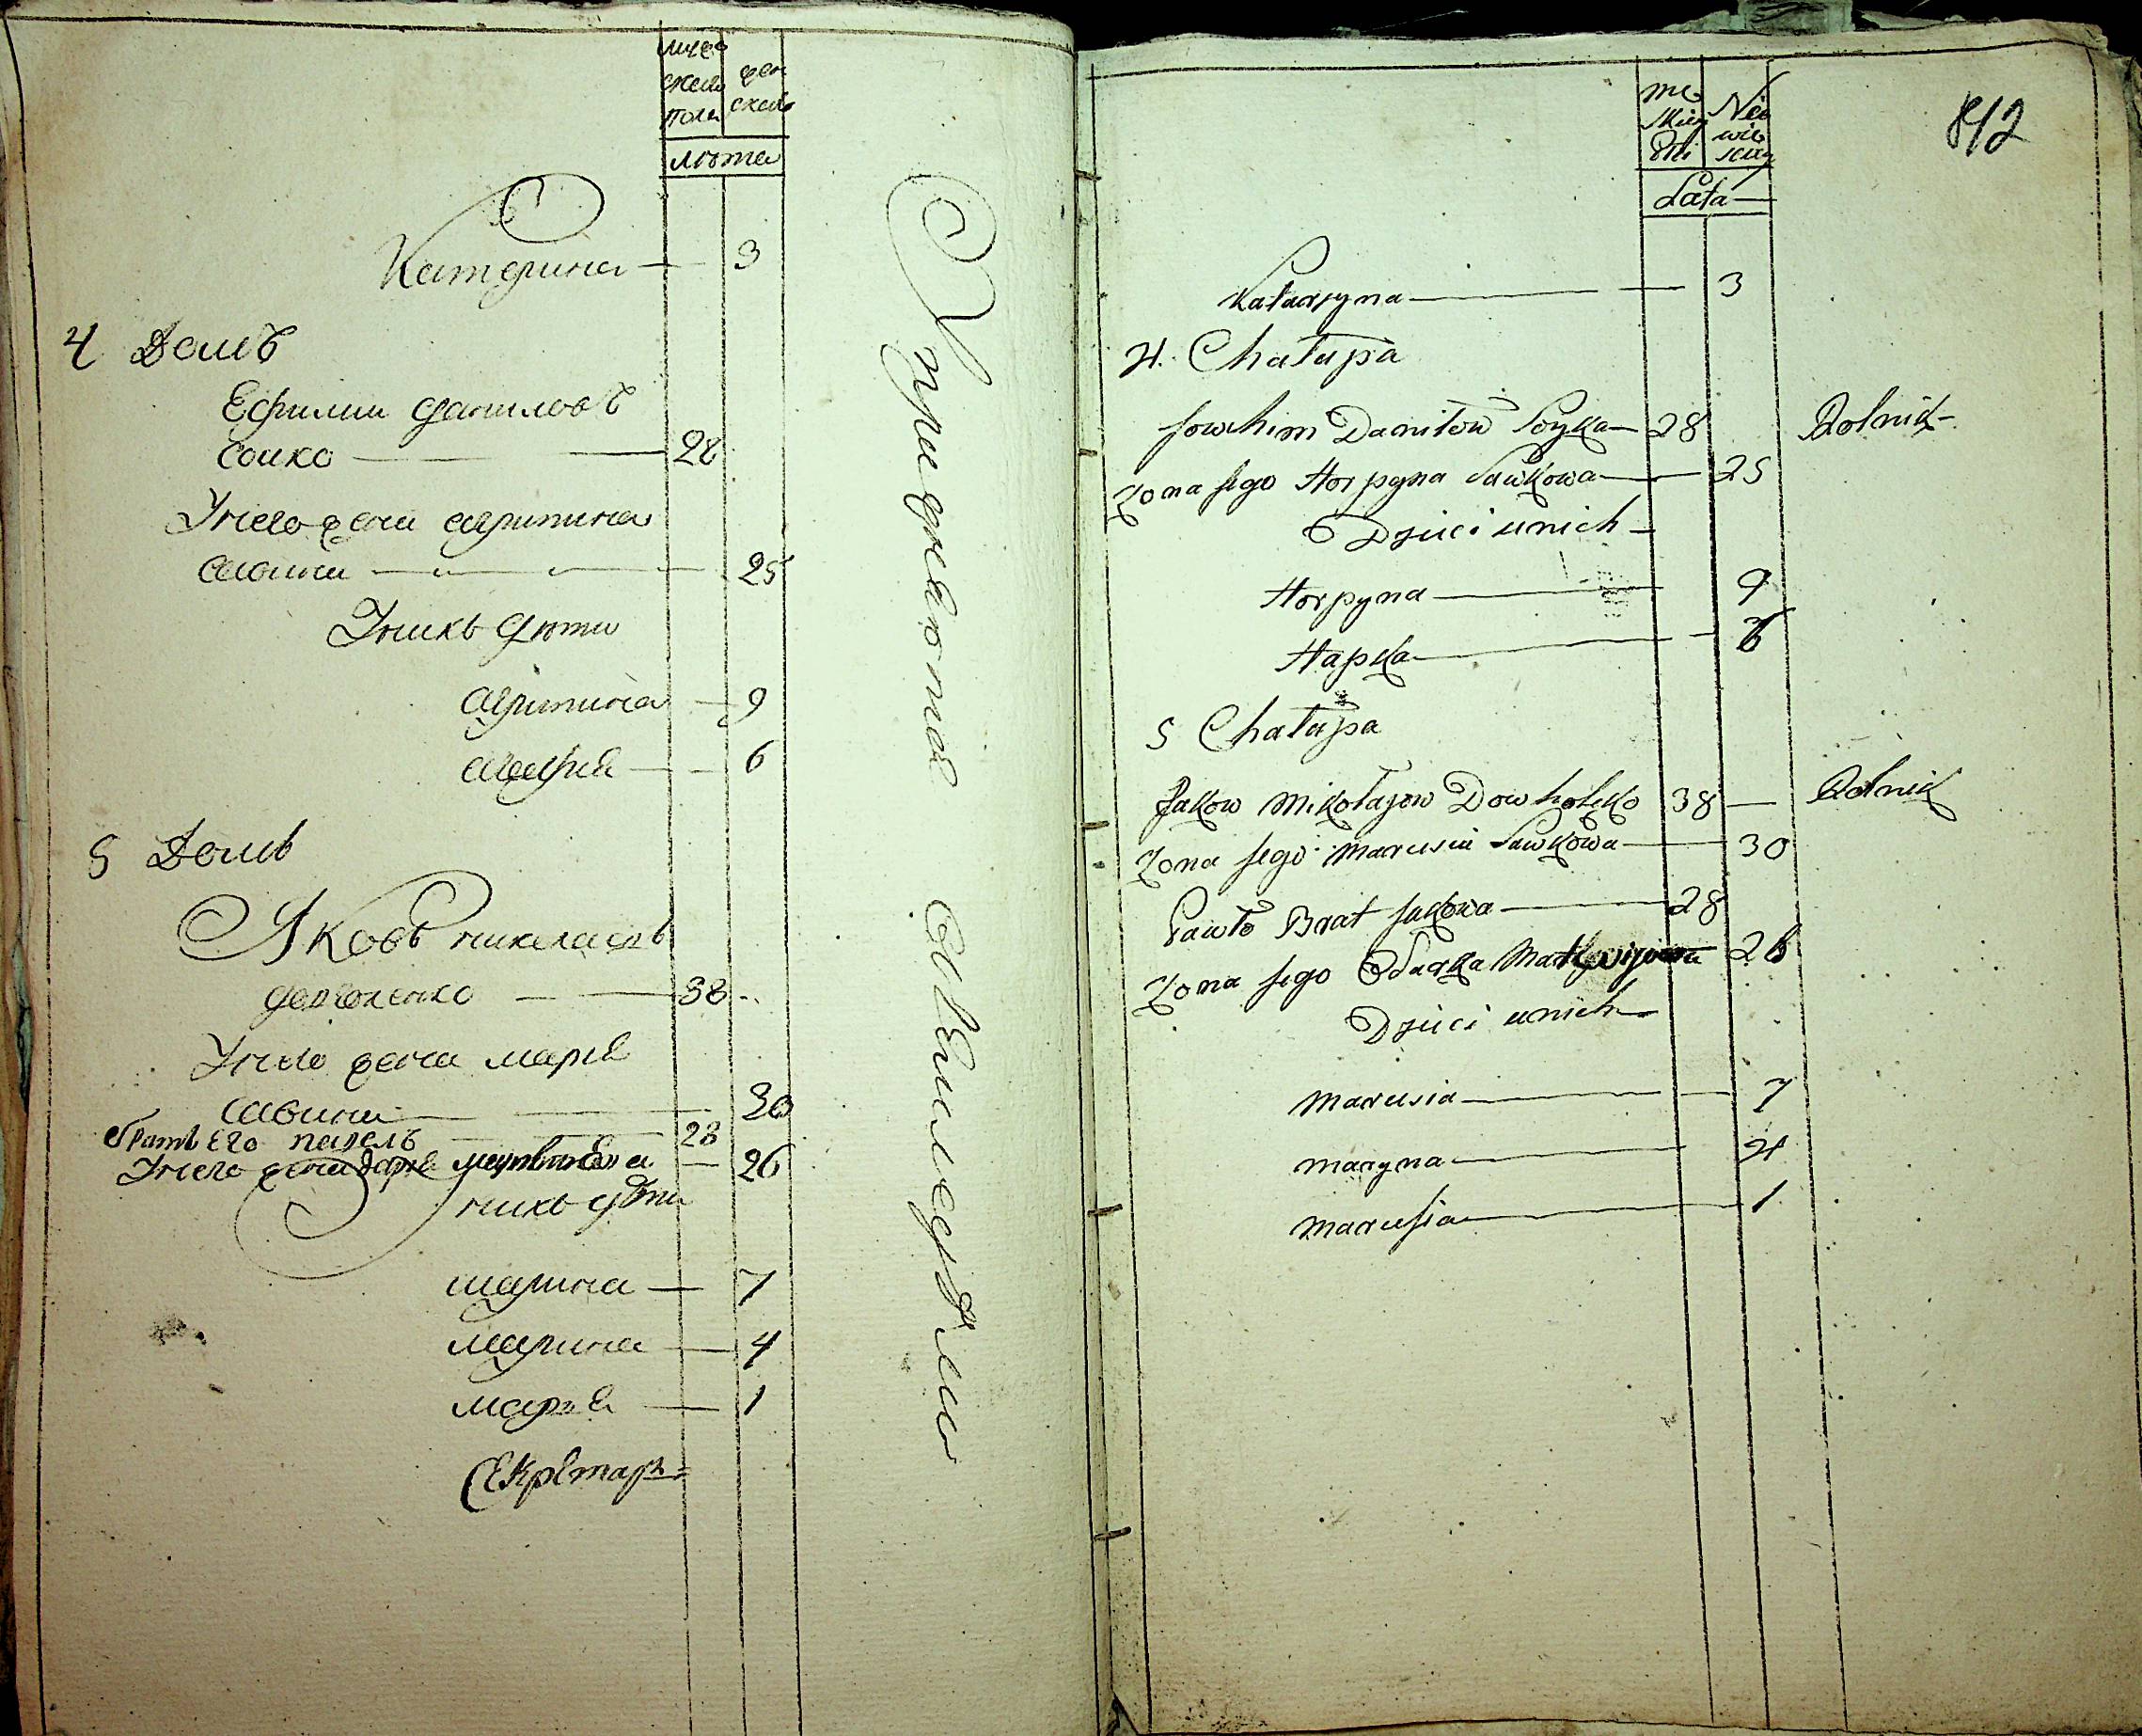 муже
скаго
пола
жен
скаго
лѣта
Катерина — 3
4 Домъ
Ефимъ даниловъ
Сойко — 28
У него жена агрипина
савина — 25
У нихъ дѣти
агрипина — 9
агафия — 6
5 Домъ
Яковъ николаевъ
довголенко — 38
У него жена марья
савина — 30
братъ его павелъ — 28
У него жена дарья матвѣева — 26
У нихъ дѣти
марина — 7
марина — 4
марья — 1
Секретарь
842
Mę
skiey
Płci
Nie
wie
sciey
Lata
Katarzyna — 3
4. Chałupa
Jowhim Daniłow Soyka — 28 Rolnik
Zona jego Horpyna Sawkowa — 25
Dzieci u nich
Horpyna — 9
Hapka — 6
5 Chałupa
Jakow Mikołajow Dowholeko 38 — Rolnik
Zona jego Marusia Sawkowa — 30
Pawło Brat Jakowa — 28
Zona jego Odarka Matwijowa 26
Dzieci u nich
Marusia — 7
Maryna — 4
Marusia — 1